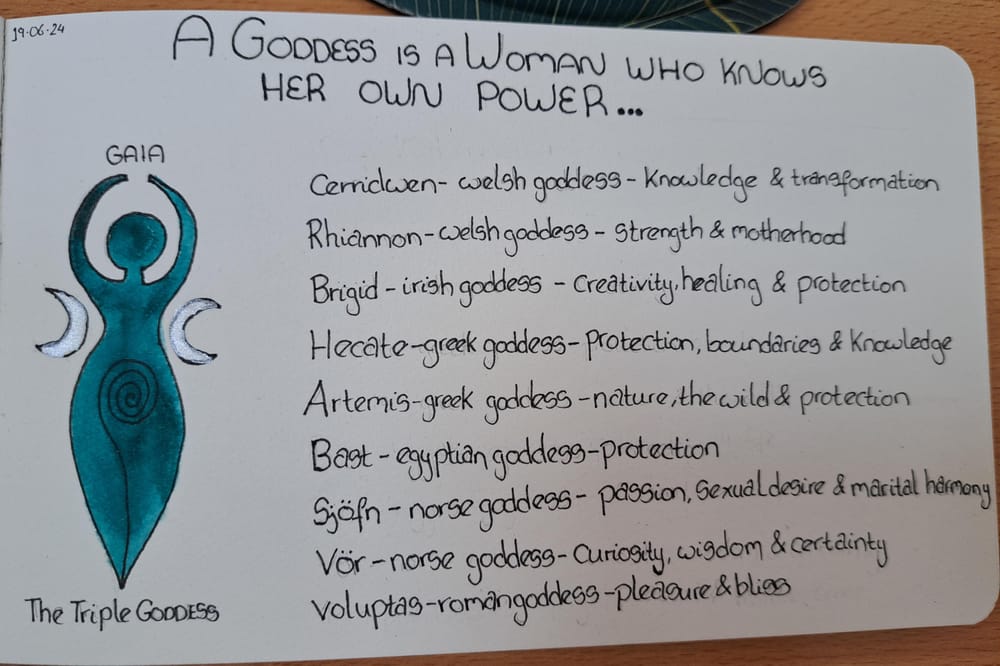 19.06.24
A GODDESS IS A WOMAN WHO KNOWS
HER OWN POWER...
GAIA
The Triple GODDESS
Cerridwen - welsh goddess - Knowledge & transformation
Rhiannon - welsh goddess - strength & motherhood
Brigid - irish goddess - Creativity, healing & protection
Hecate - greek goddess - Protection, boundaries & Knowledge
Artemis - greek goddess - nature, the wild & protection
Bast - egyptian goddess - protection
Sjöfn - norse goddess - passion, sexual desire & marital harmony
Vör - norse goddess - Curiosity, wisdom & certainty
Voluptas - roman goddess - pleasure & bliss